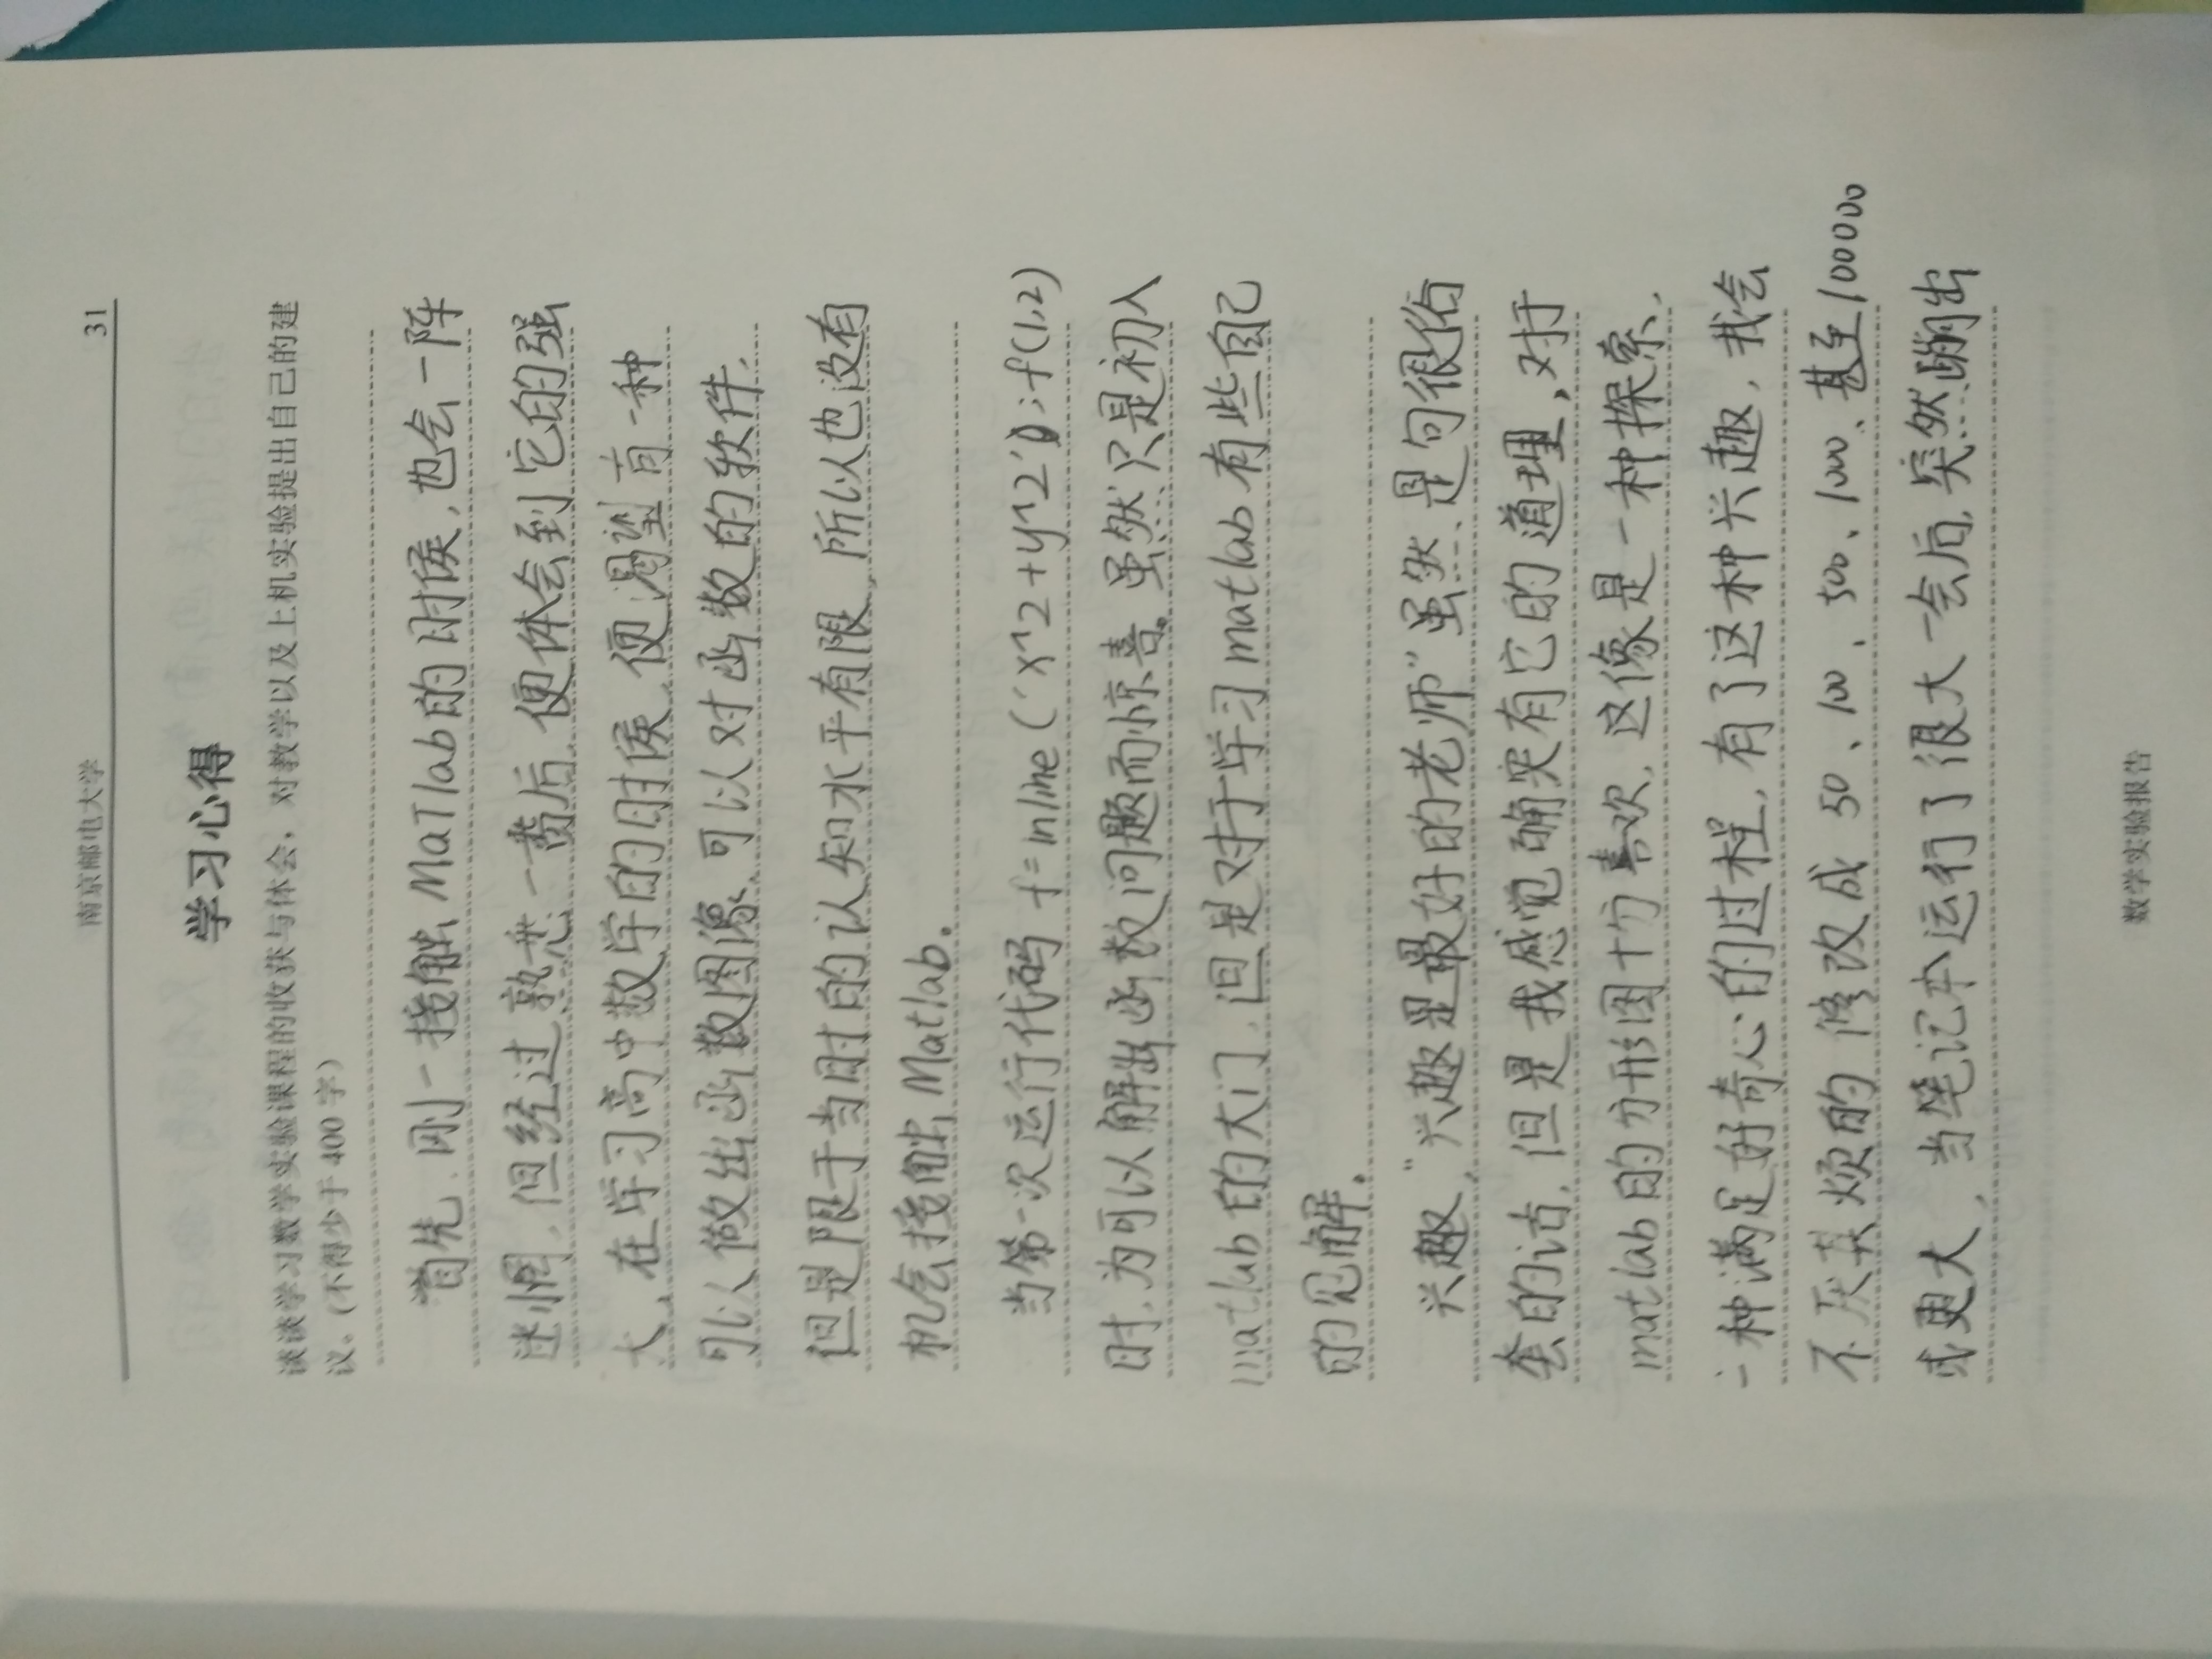 南京邮电大学 31
学习心得
谈谈学习数学实验课程的收获与体会，对教学以及上机实验提出自己的建
议。(不得少于 400 字)
首先，刚一接触MaTlab的时候，也会一阵
迷惘，但经过熟悉一番后，便体会到它的强
大，在学习高中数学的时候，便渴望有一种
可以做出函数图像，可以对函数的软件，
但是限于当时的认知水平有限，所以也没有
机会接触Matlab.
当第一次运行代码 f=inline('x^2+y^2');f(1,2)
时，为可以解出函数问题而惊喜。虽然只是初入
matlab的大门，但是对于学习matlab有些自己
的见解.
兴趣，"兴趣是最好的老师"虽然是句很俗
套的话，但是我感觉确实有它的道理，对于
matlab的分形图十分喜欢，这像是一种探索，
一种满足好奇心的过程，有了这种兴趣，我会
不厌其烦的修改成 50、100、500、1000、甚至100000
或更大，当笔记本运行了很大一会后，突然蹦出
数学实验报告